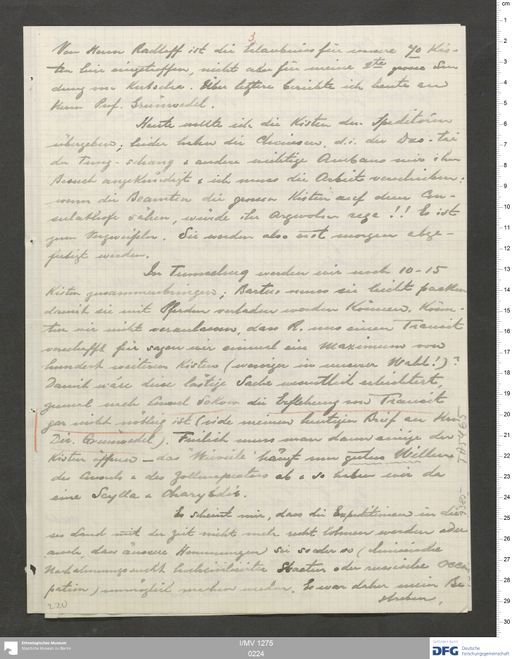 3
Von Herrn Radloff ist die Erlaubniss für unsere 70 Kis-
ten hier eingetroffen, nicht aber für meine 2te grosse Sen-
dung von Kutscha. Über letztere berichte ich heute an
Herrn Prof. Grünwedel.
Heute wollte ich die Kisten dem Spediteur
übergeben; leider haben die Chinesen, d.i. der Dao-tai
der Tung-shang & andere wichtige Ambans mir ihren
Besuch angekündigt & ich muss die Arbeit verschieben:
wenn die Beamten die grossen Kisten auf dem Con-
sulatshofe sähen, würde ihr Argwohn rege!! Es ist
zum Verzweifeln. Sie werden also erst morgen abge-
fertigt werden.
In Tumschuq werden wir noch 10-15
Kisten zusammenbringen; Bartus muss sie leicht packen
damit sie mit Pferden verladen werden können. Könn-
ten wir nicht veranlassen, dass R. uns einen Transit
verschafft für sagen wir einmal ein Maximum von
hundert weiteren Kisten (weniger in unserer Wahl!)?
Damit wäre diese lästige Sache wesentlich erleichtert,
zumal nach Consul Sokow die Erflehung von Transit
gar nicht nötig ist (vide meinen heutigen Brief an Herrn
Dir. Grünwedel). Freilich muss man dann einige der
Kisten öffnen - das "Wieviele" hängt vom guten Willen
des Consuls & des Zollinspectors ab & so haben wir da
eine Scylla & Charybdis.
Es scheint mir, dass die Expeditionen in die-
ses Land mit der Zeit nicht mehr recht lohnen werden oder
auch, dass äussere Hemmungen sei so oder so (chinesische
Nachahmungssucht civilisierter Staaten oder russische Occu-
pation) unmöglich machen werden. Es war daher mein Be-
streben,
220
TA 465
I/MV 1275
0224
Ethnologisches Museum
Staatliche Museen zu Berlin
Gefördert durch
DFG Deutsche
Forschungsgemeinschaft
cm
1
2
3
4
5
6
7
8
9
10
11
12
13
14
15
16
17
18
19
20
21
22
23
24
25
26
27
28
29
30